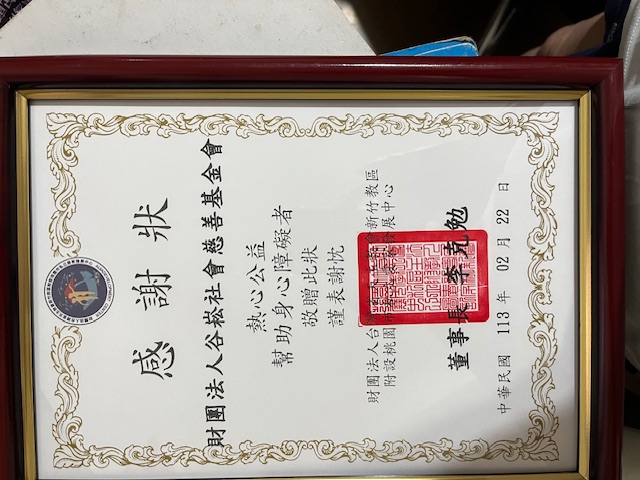 感謝狀
財團法人谷崧社會慈善基金會
熱心公益
幫助身心障礙者
敬贈此狀
謹表謝忱
財團法人台 會新竹教區
附設桃園市 發展中心
董事長 李克勉
中華民國 113 年 02 月 22 日